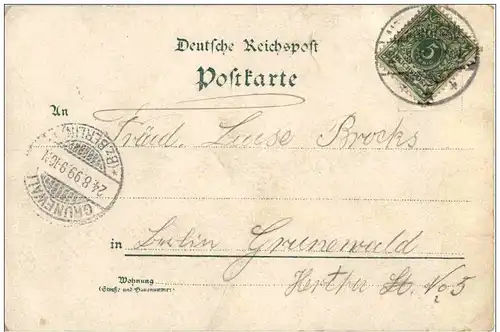 Deutsche Reichspost
Postkarte
5
An
Fräul. Luise Brocks
GRUNEWALD
(BZ. BERLIN)
24.8.99.9-10
in Berlin Grunewald
Wohnung
(Straße und Hausnummer)
Hertha St. No 5